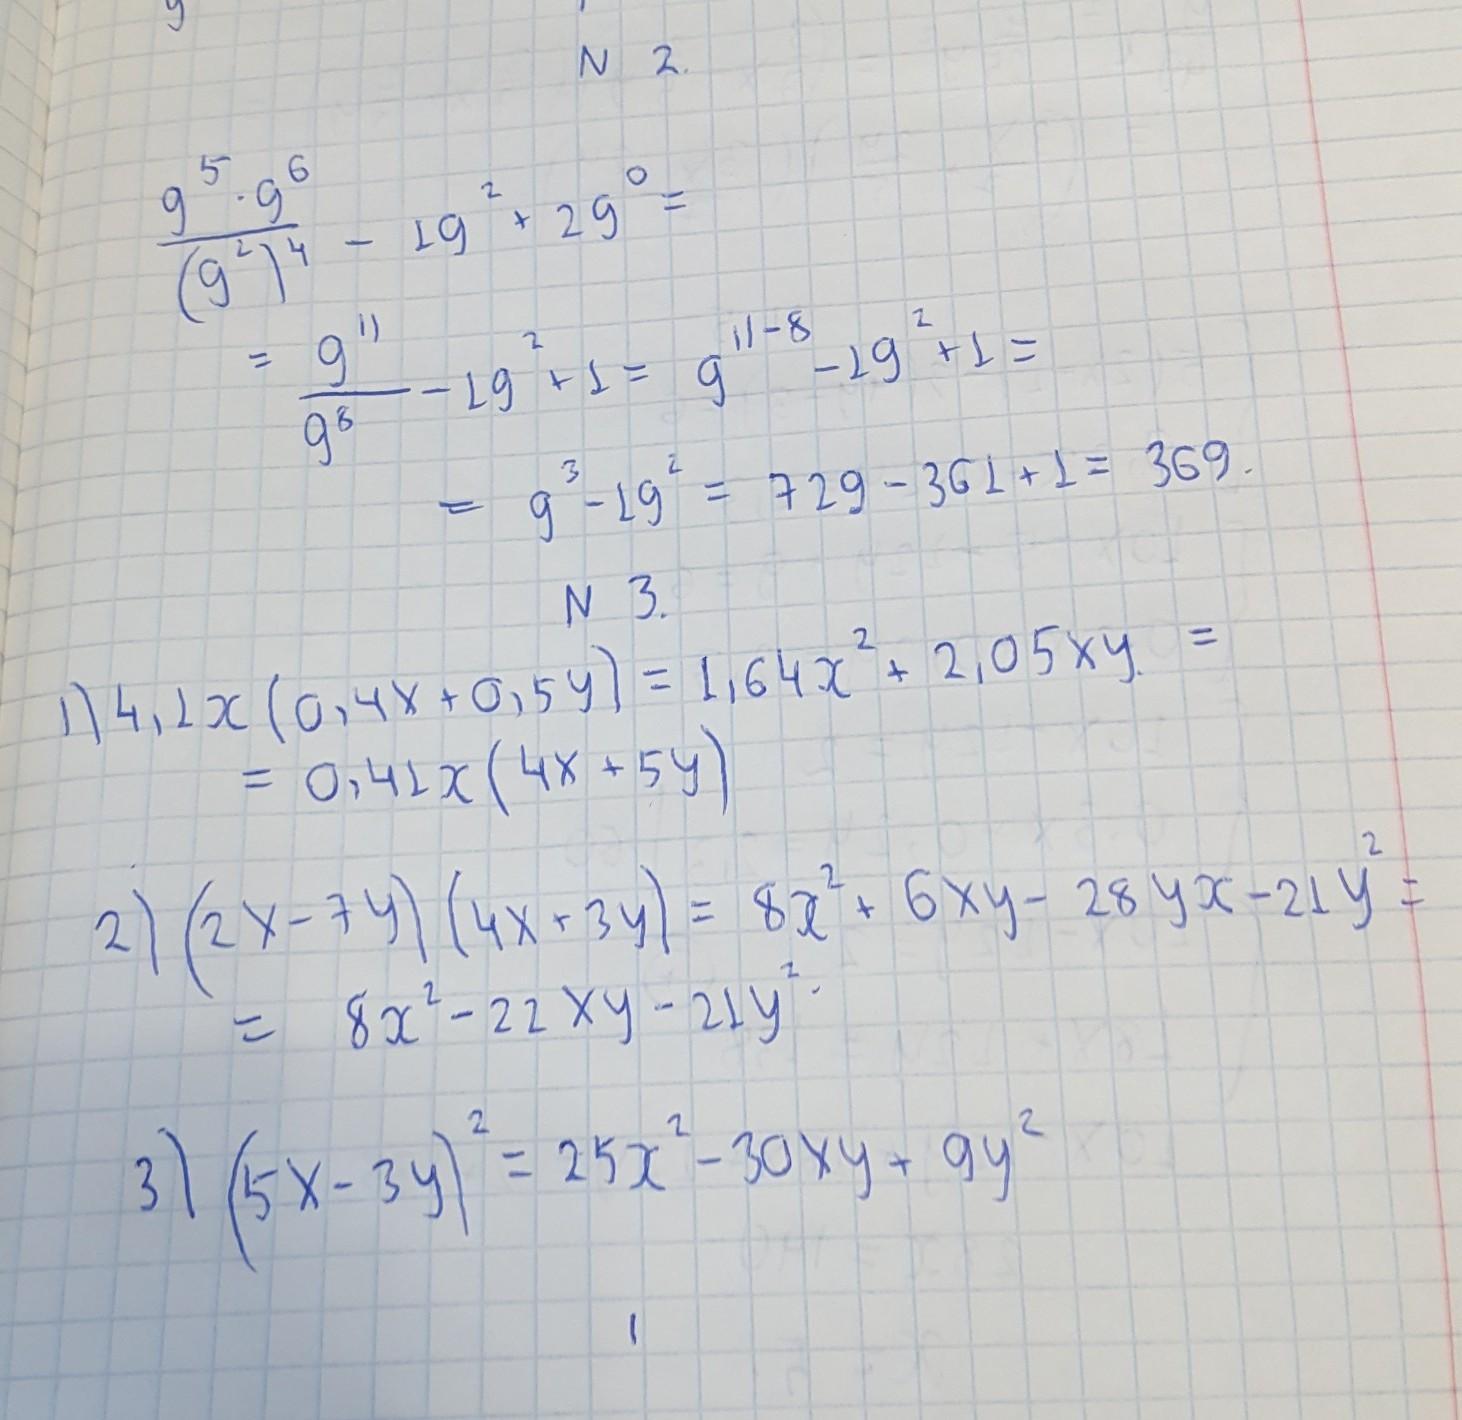 N 2.
9^5 · 9^6 / (9^2)^4 - 19^2 + 29^0 =
= 9^11 / 9^8 - 19^2 + 1 = 9^(11-8) - 19^2 + 1 =
= 9^3 - 19^2 = 729 - 361 + 1 = 369.
N 3.
1) 4,1x (0,4x + 0,5y) = 1,64x^2 + 2,05xy. =
= 0,41x (4x + 5y)
2) (2x - 7y) (4x + 3y) = 8x^2 + 6xy - 28yx - 21y^2 =
= 8x^2 - 22xy - 21y^2.
3) (5x - 3y)^2 = 25x^2 - 30xy + 9y^2